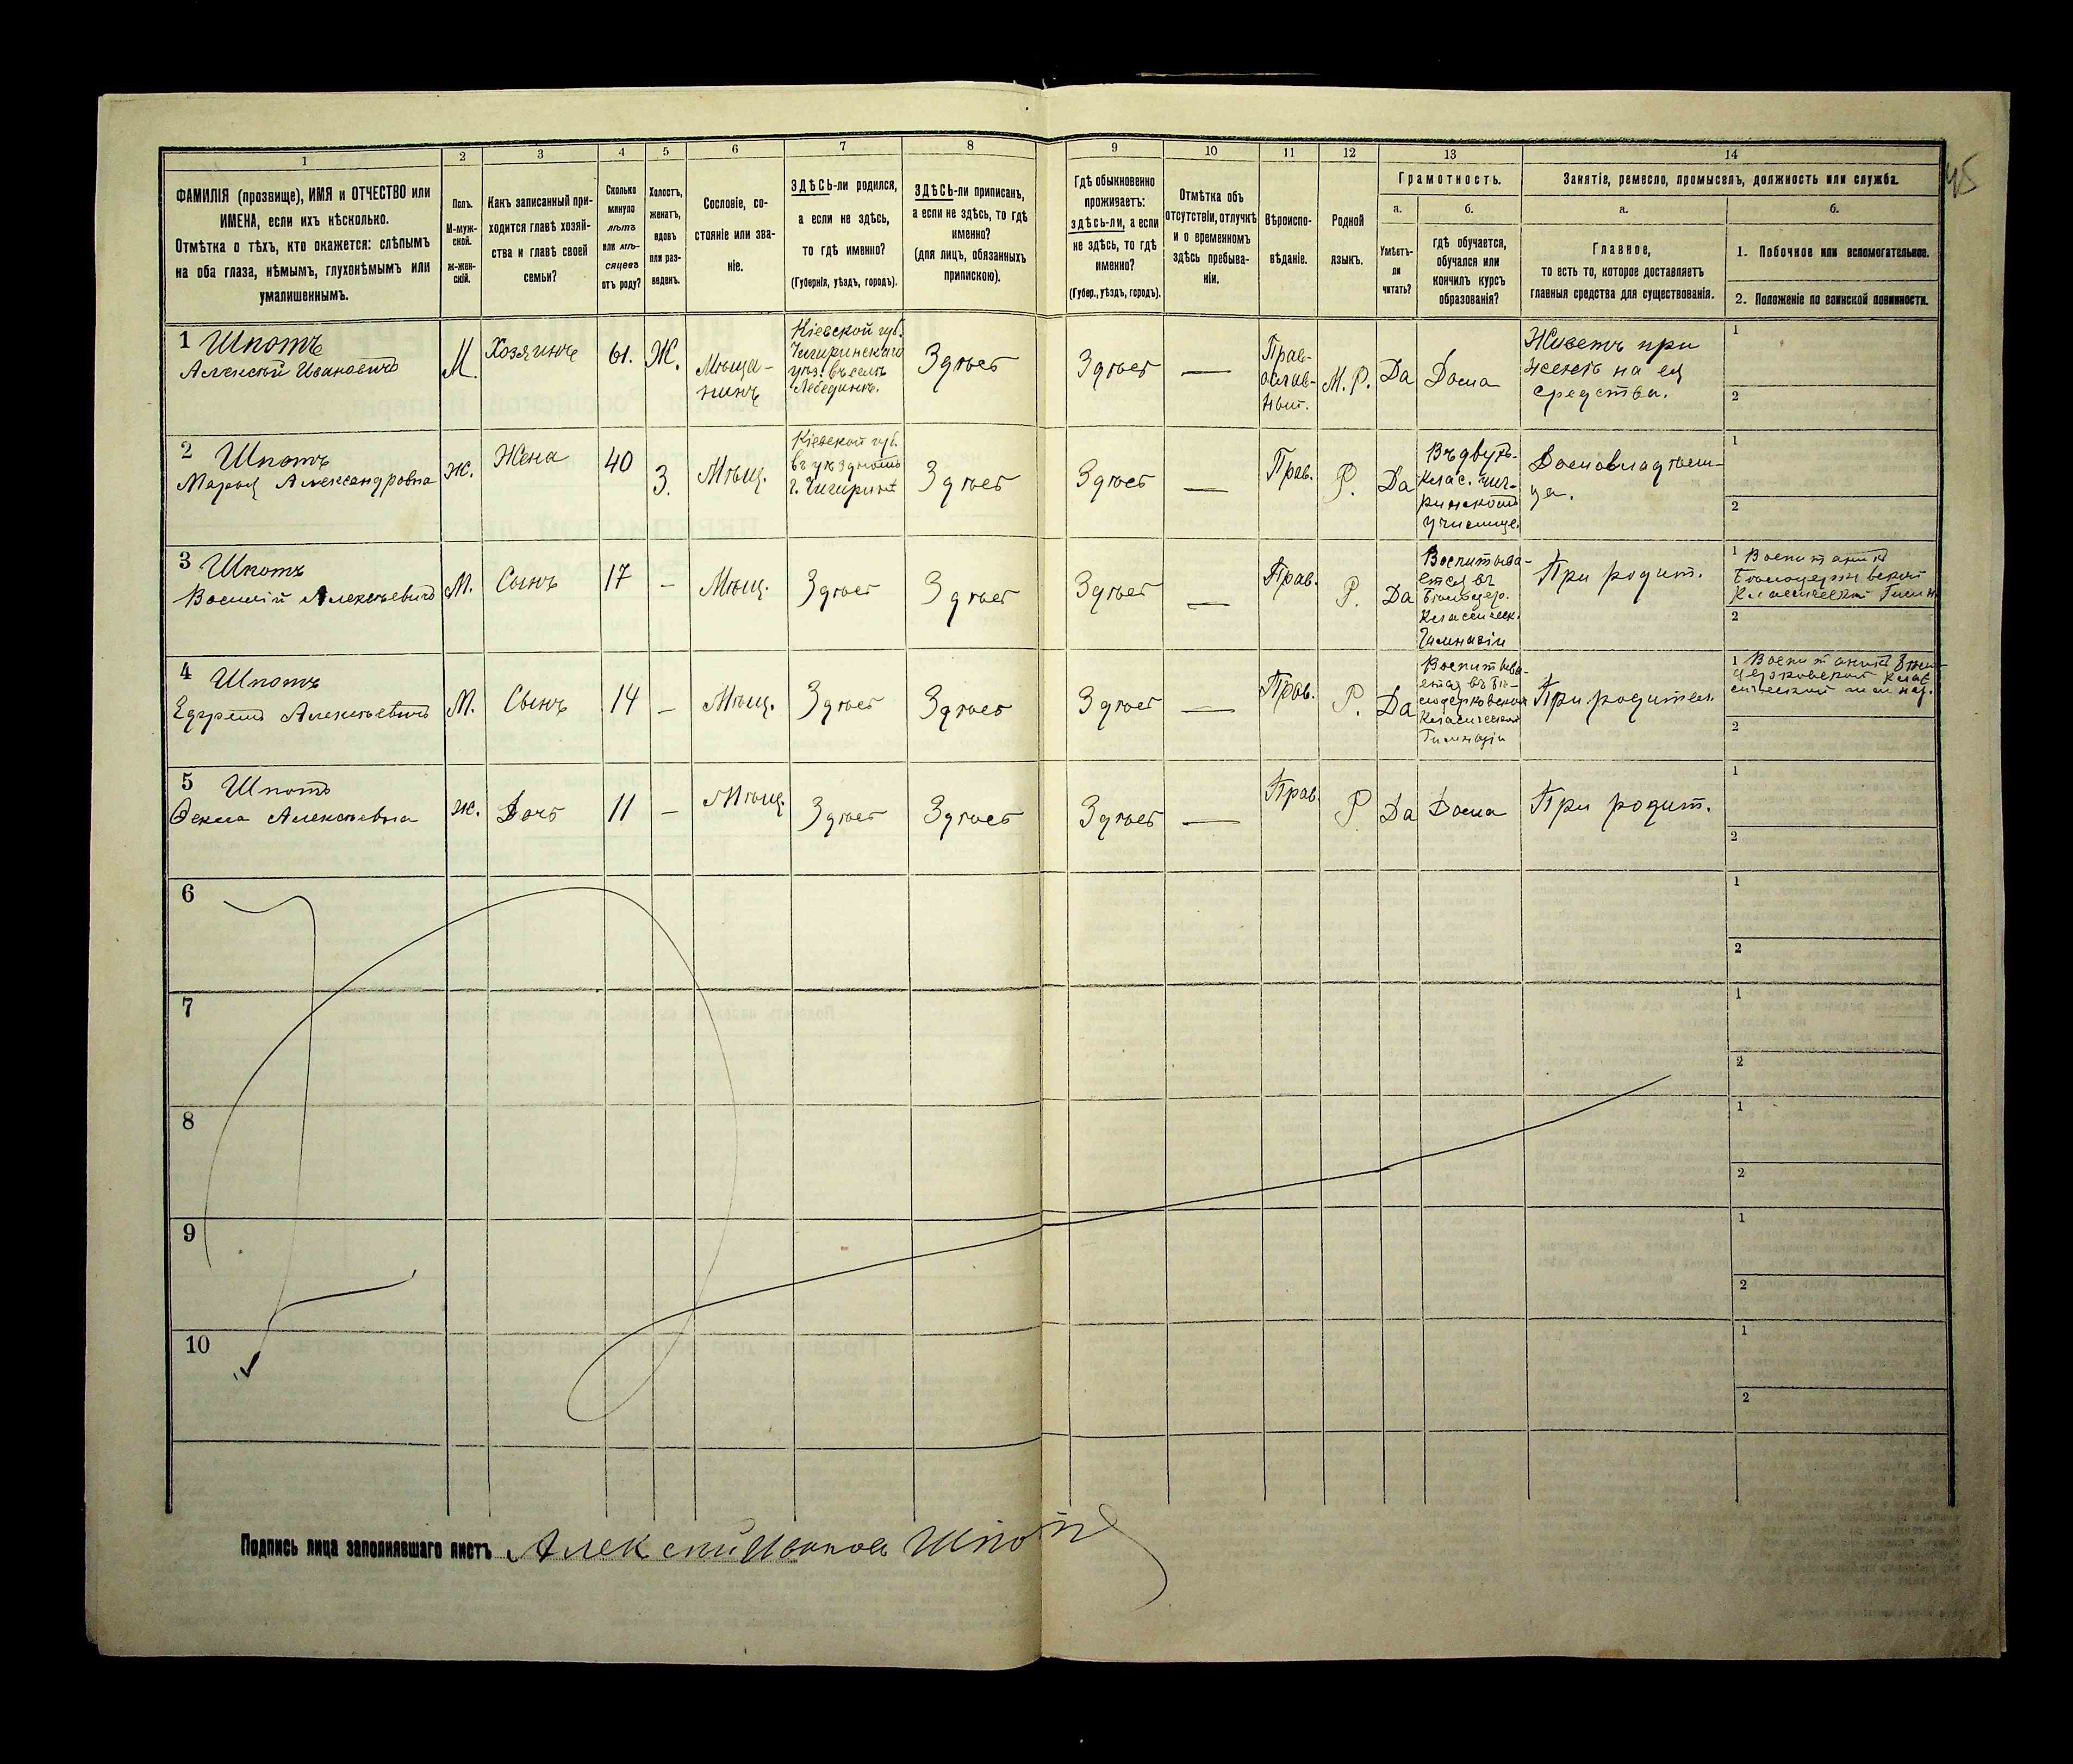 45
1
2
3
4
5
6
7
8
9
10
11
12
13
14
ФАМИЛІЯ (прозвище), ИМЯ и ОТЧЕСТВО или
ИМЕНА, если ихъ нѣсколько.
Отмѣтка о тѣхъ, кто окажется: слѣпымъ
на оба глаза, нѣмымъ, глухонѣмымъ или
умалишеннымъ.
Полъ.
М-муж-
ской.
Ж-жен-
скій.
Какъ записанный при-
ходится главѣ хозяй-
ства и главѣ своей
семьи?
Сколько
минуло
лѣтъ
или мѣ-
сяцевъ
отъ роду?
Холостъ,
женатъ,
вдовъ
или раз-
веденъ.
Сословіе, со-
стояніе или зва-
ніе.
ЗДѢСЬ-ли родился,
а если не здѣсь,
то гдѣ именно?
(Губернія, уѣздъ, городъ).
ЗДѢСЬ-ли приписанъ,
а если не здѣсь, то гдѣ
именно?
(для лицъ, обязанныхъ
припискою).
Гдѣ обыкновенно
проживаетъ:
здѣсь-ли, а если
не здѣсь, то гдѣ
именно?
(Губер., уѣздъ, городъ).
Отмѣтка объ
отсутствіи, отлучкѣ
и о временномъ
здѣсь пребыва-
ніи.
Вѣроиспо-
вѣданіе.
Родной
языкъ.
Грамотность.
а.
Умѣетъ-
ли
читать?
б.
гдѣ обучается,
обучался или
кончилъ курсъ
образованія?
Занятіе, ремесло, промыселъ, должность или служба.
а.
Главное,
то есть то, которое доставляетъ
главныя средства для существованія.
б.
1. Побочное или вспомогательное.
2. Положеніе по воинской повинности.
1 Шпотъ
Алексѣй Ивановичъ
М.
Хозяинъ
61.
Ж.
Мѣща-
нинъ
Кіевской губ.
Чигиринскаго
уѣз. въ селѣ
Лебединѣ.
Здѣсь
Здѣсь
—
Прав-
ослав-
ный.
М. Р.
Да
Дома
Живетъ при
женѣ на ея
средства.
1
2
2 Шпотъ
Марья Александровна
Ж.
Жена
40
З.
Мѣщ.
Кіевской губ.
въ уѣздномъ
г. Чигиринѣ
Здѣсь
Здѣсь
—
Прав.
Р.
Да
Въ двухъ-
клас. чиг-
ринскомъ
училище.
Домовладѣли-
ца.
1
2
3 Шпотъ
Василій Алексѣевичъ
М.
Сынъ
17
—
Мѣщ.
Здѣсь
Здѣсь
Здѣсь
—
Прав.
Р.
Да
Воспитыва-
ется въ
Бѣлоцер.
Классическ.
Гимназіи
При родит.
1 Воспитаникъ
Бѣлоцерковской
Класической Гимн.
2
4 Шпотъ
Ефремъ Алексѣевичъ
М.
Сынъ
14
—
Мѣщ.
Здѣсь
Здѣсь
Здѣсь
—
Прав.
Р.
Да
Воспитыва-
ется въ Бѣ-
лоцерковской
Класической
Гимназіи
При родител.
1 Воспитаникъ Бѣло-
церковской клас
сической гимназ.
2
5 Шпотъ
Фекла Алексѣевна
Ж.
Дочь
11
—
Мѣщ.
Здѣсь
Здѣсь
Здѣсь
—
Прав.
Р
Да
Дома
При родит.
1
2
6
1
2
7
1
2
8
1
2
9
1
2
10
1
2
Подпись лица заполнявшаго листъ Алексѣй Иванов Шпотъ